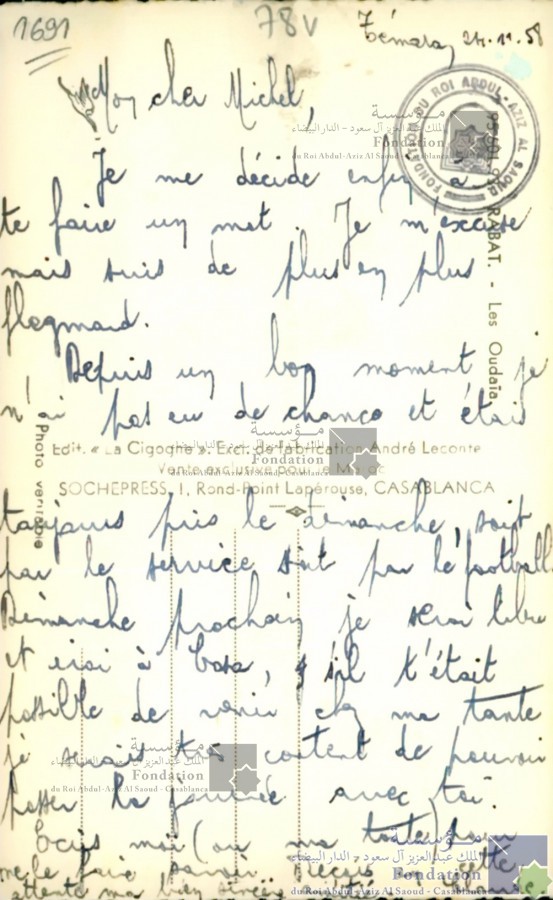 1691
78v
Témara, 24.11.58
Mon cher Michel,
Je me décide enfin à
te faire un mot. Je m'excuse
mais suis de plus en plus
flegmard.
Depuis un bon moment je
n'ai pas eu de chance et étais
toujours pris le dimanche, soit
par le service soit par le football.
Dimanche prochain je serai libre
et irai à Casa, s'il t'était
possible de venir chez ma tante
je serais très content de pouvoir
passer la journée avec toi.
Ecris moi (ou ma tante) pour
me le faire savoir. Reçois cette
attente ma bien sincère
RABAT. - Les Oudaïa
Photo véritable
Edit. « La Cigogne ». Excl. de fabrication André Leconte
Vente exclusive pour le Maroc
SOCHEPRESS, 1, Rond-Point Lapérouse, CASABLANCA
FONDATION DU ROI ABDUL-AZIZ AL SAOUD
مؤسسة
الملك عبد العزيز آل سعود - الدار البيضاء
Fondation
du Roi Abdul-Aziz Al Saoud - Casablanca
مؤسسة
الملك عبد العزيز آل سعود - الدار البيضاء
Fondation
du Roi Abdul-Aziz Al Saoud - Casablanca
مؤسسة
الملك عبد العزيز آل سعود - الدار البيضاء
Fondation
du Roi Abdul-Aziz Al Saoud - Casablanca
مؤسسة
الملك عبد العزيز آل سعود - الدار البيضاء
Fondation
du Roi Abdul-Aziz Al Saoud - Casablanca